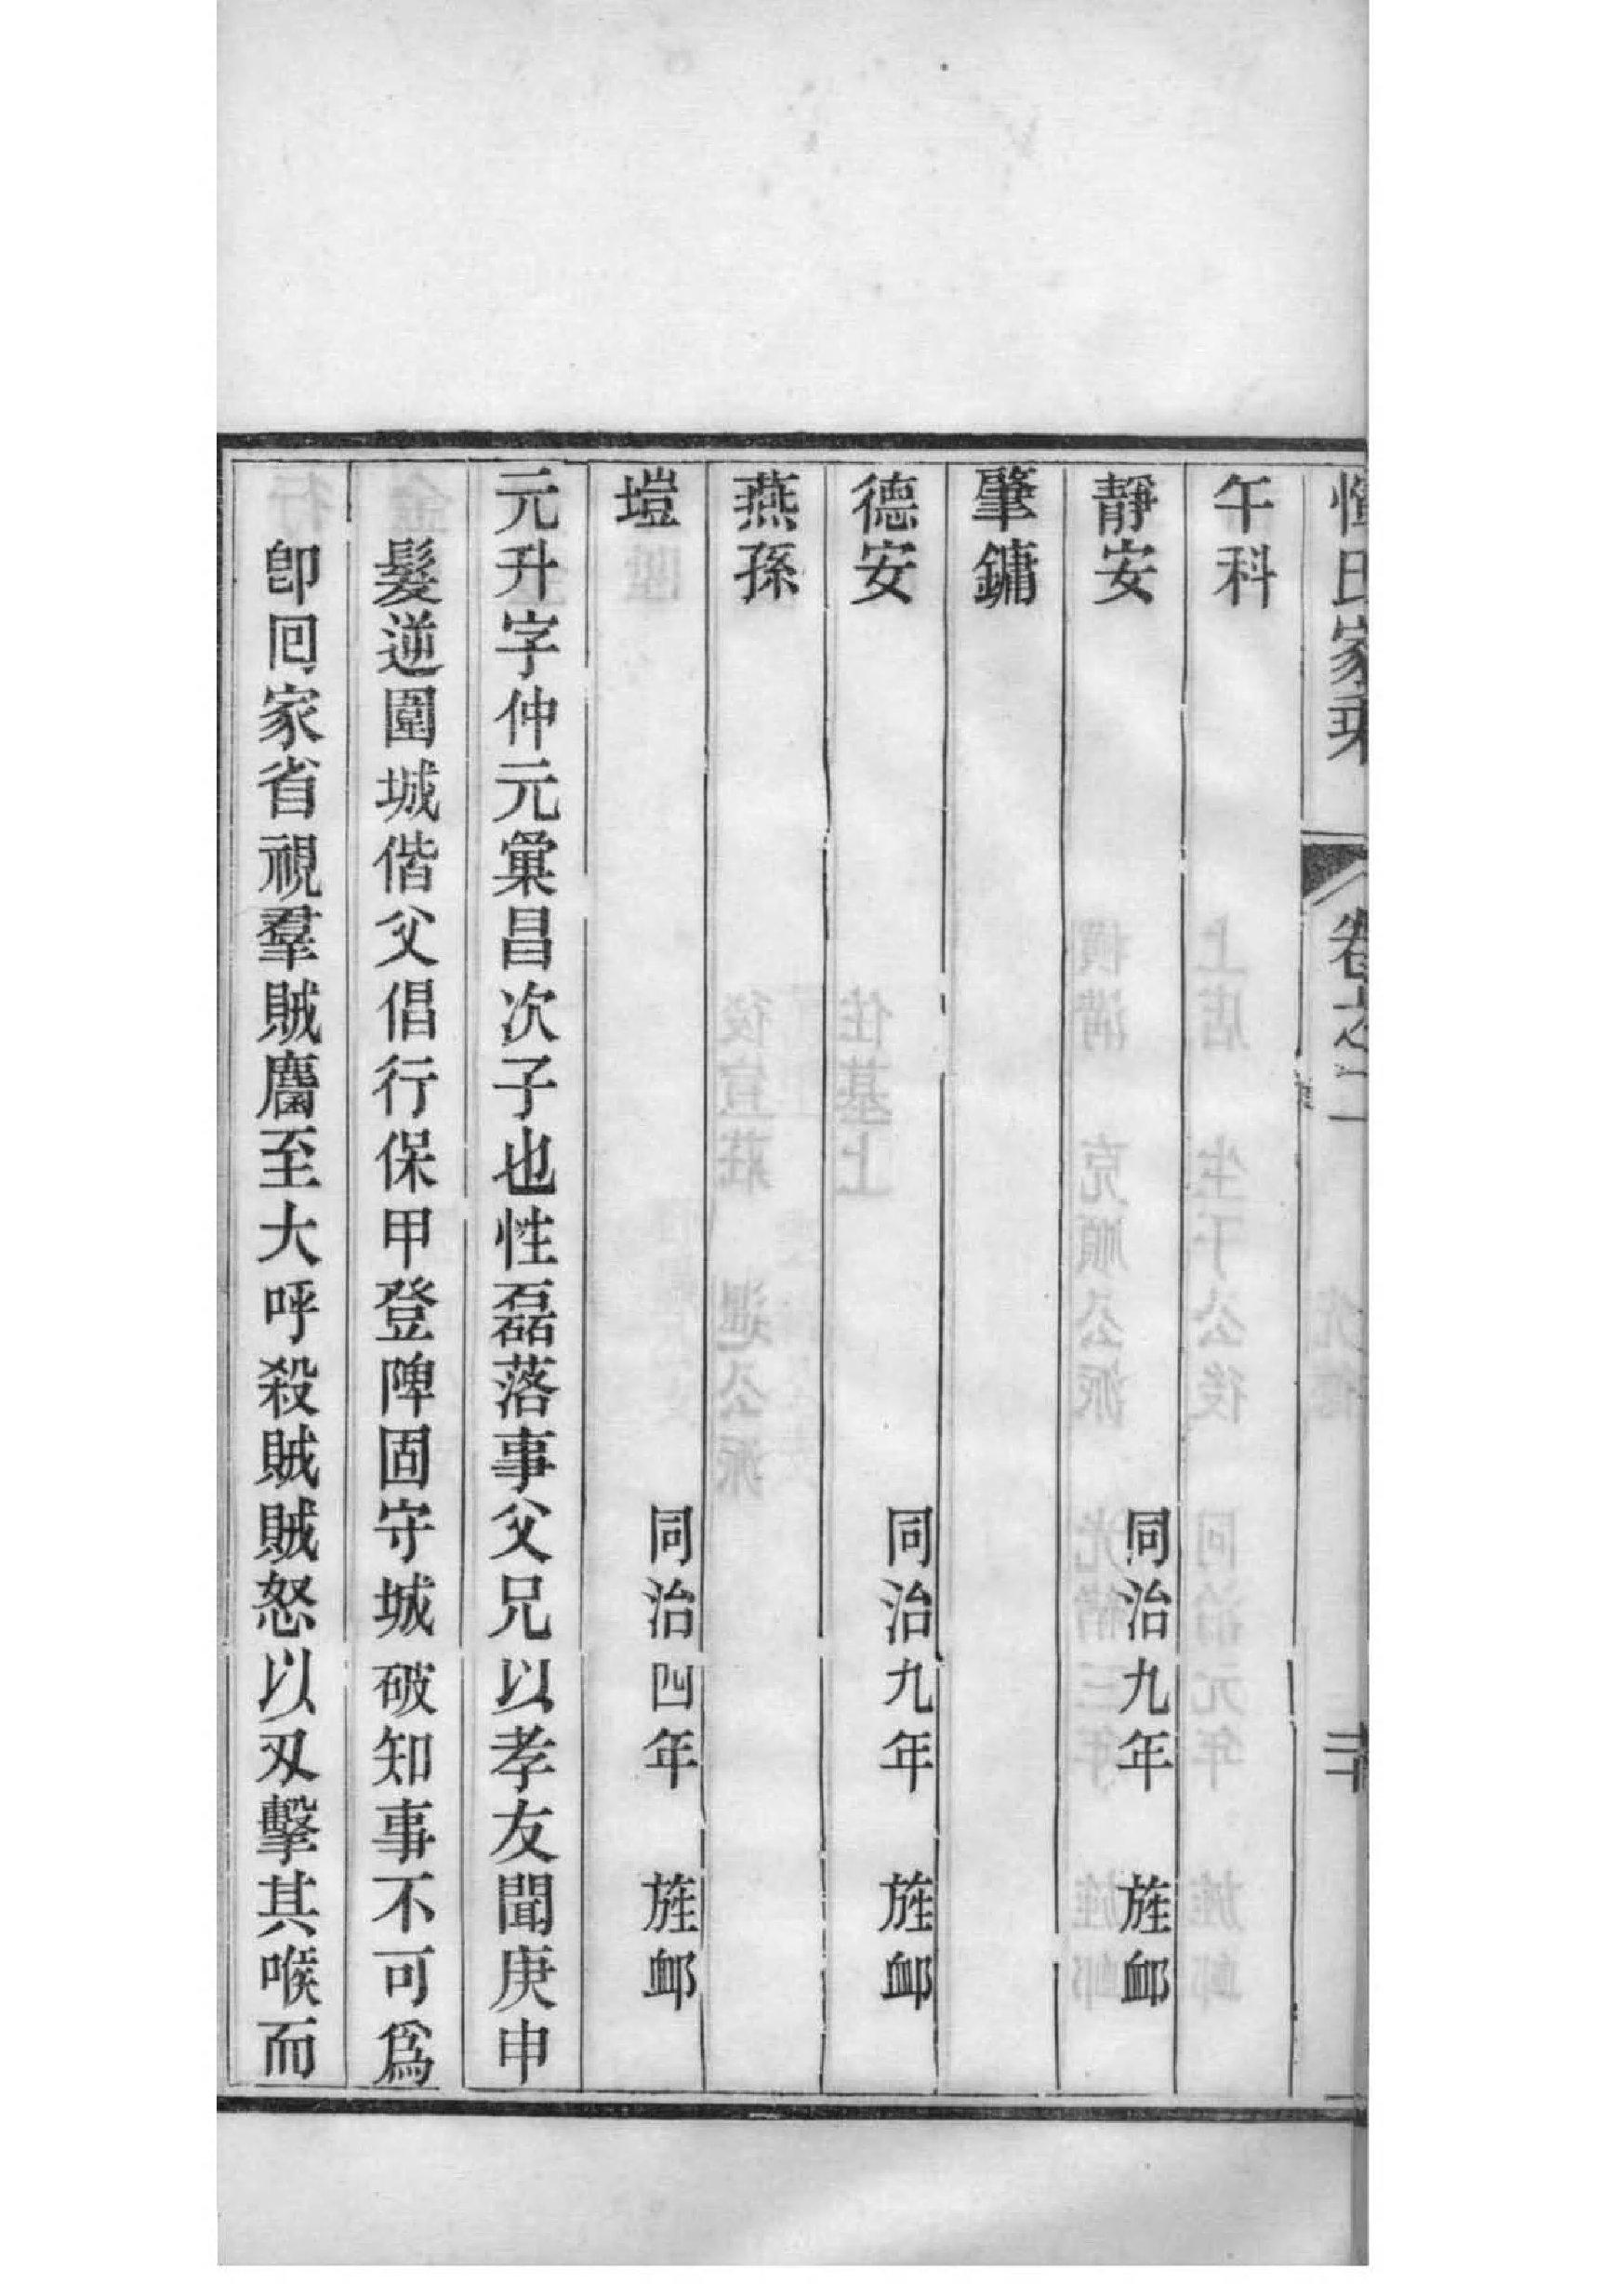 惲氏家乘 卷之二 二十
午科
靜安 同治九年 旌䘏
肇鏞
德安 同治九年 旌䘏
燕孫
塏 同治四年 旌䘏
元升字仲元彙昌次子也性磊落事父兄以孝友聞庚申
髮逆圍城偕父倡行保甲登陴固守城破知事不可爲
卽回家省視羣賊麕至大呼殺賊賊怒以刄擊其喉而